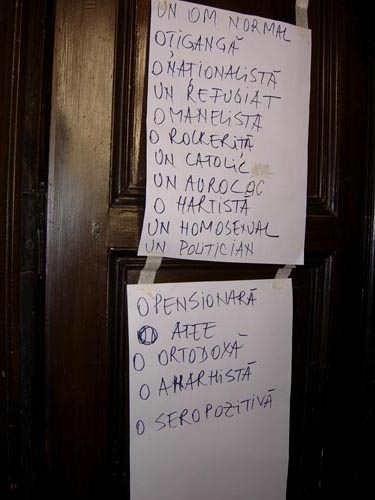 UN OM NORMAL
O ȚIGANCĂ
O NAȚIONALISTĂ
UN REFUGIAT
O MANELISTĂ
O ROCKERIȚĂ
UN CATOLIC
UN AUROLAC
O HARTISTĂ
UN HOMOSEXUAL
UN POLITICIAN
O PENSIONARĂ
O ATEE
O ORTODOXĂ
O ANARHISTĂ
O SEROPOZITIVĂ